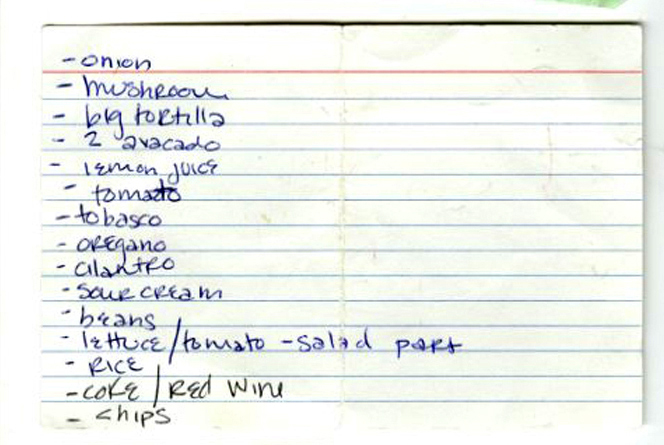 - onion
- mushroom
- big tortilla
- 2 avacado
- lemon juice
- tomato
- tobasco
- oregano
- cilantro
- sour cream
- beans
- lettuce/tomato - salad part
- Rice
- coke / Red Wine
- chips